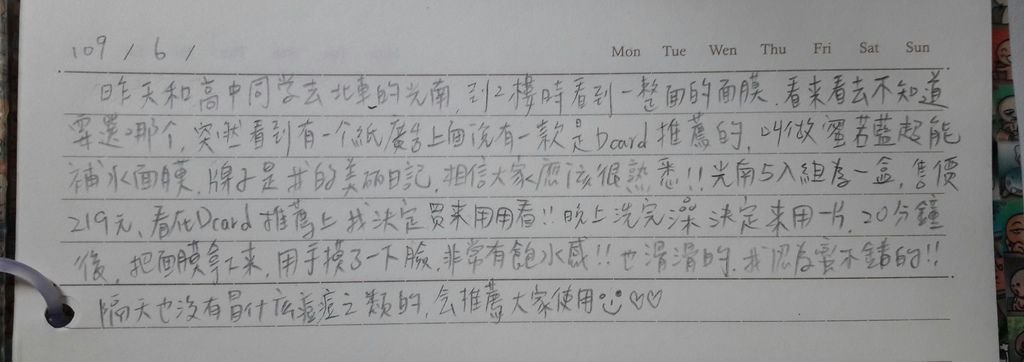 109 / 6 /
Mon Tue Wen Thu Fri Sat Sun
昨天和高中同学去北車的光南,到2樓時看到一整面的面膜.看來看去不知道
要選哪个,突然看到有一个紙廣告上面說有一款是Dcard推薦的,叫做蜜若藍超能
補水面膜,牌子是我的美麗日記,相信大家應該很熟悉!!光南5入組為一盒,售價
219元,看在Dcard推薦上我決定買來用用看!!晚上洗完澡決定來用一片,20分鐘
後,把面膜拿下來,用手摸了一下臉,非常有飽水感!!也滑滑的,我認為蠻不錯的!!
隔天也沒有冒什麼痘痘之類的,会推薦大家使用☺♡♡